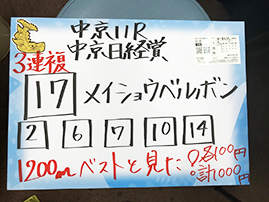 中京11R
3連複 中京日経賞
17 メイショウベルボン
2 6 7 10 14
1200mベストと見た 各100円
計1000円